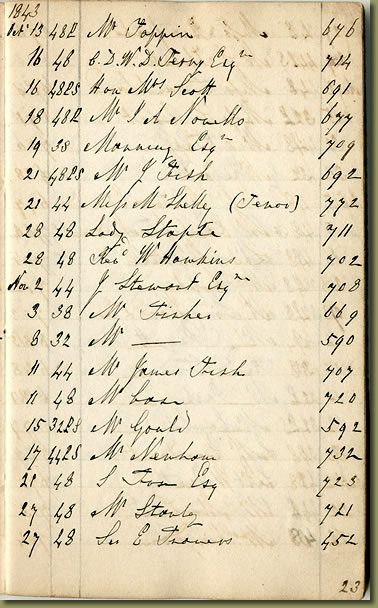 1843
Oct 13 48 Mr Toppin 676
16 48 C. D. W. D. Terry Esqr 714
16 48 Hon Mrs Scott 691
18 48 Mr J A Novello 677
19 38 Manning Esqr 709
21 48 Mr J Fish 692
21 44 Miss M Shelley (Tenor) 772
28 48 Lady 711
28 48 Revd W Hawkins 702
Nov 2 44 J Stewart Esqre 708
3 38 Mr Fisher 669
8 32 Mr — 590
11 44 Mr James Fish 707
11 48 Mr Case 720
15 32 Mr Gould 592
17 44 Mr Newham 732
21 48 S Esq 723
27 48 Mr 721
27 28 E Travers 452
23